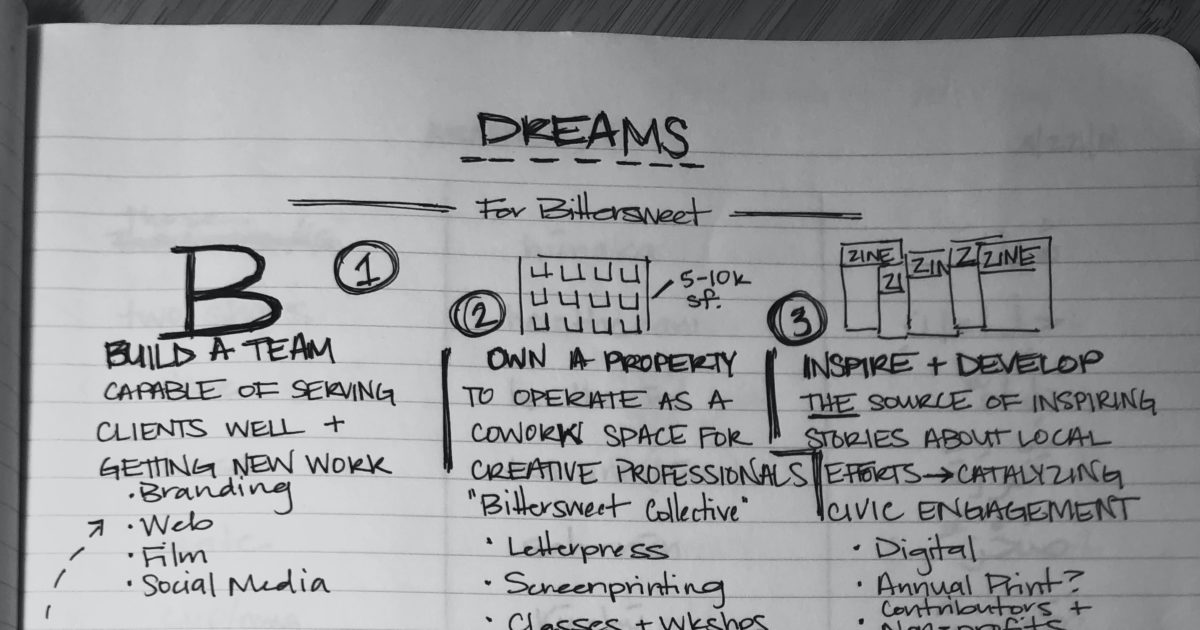 DREAMS
For Bittersweet
B
1
BUILD A TEAM
CAPABLE OF SERVING
CLIENTS WELL +
GETTING NEW WORK
· Branding
· Web
· Film
· Social Media
2
5-10K
sf.
OWN A PROPERTY
TO OPERATE AS A
COWORK SPACE FOR
CREATIVE PROFESSIONALS
"Bittersweet Collective"
· Letterpress
· Screenprinting
· Classes + Wkshps
3
ZINE ZI ZIN Z ZINE
INSPIRE + DEVELOP
THE SOURCE OF INSPIRING
STORIES ABOUT LOCAL
EFFORTS → CATALYZING
CIVIC ENGAGEMENT
· Digital
· Annual Print?
Contributors +
Non-profits